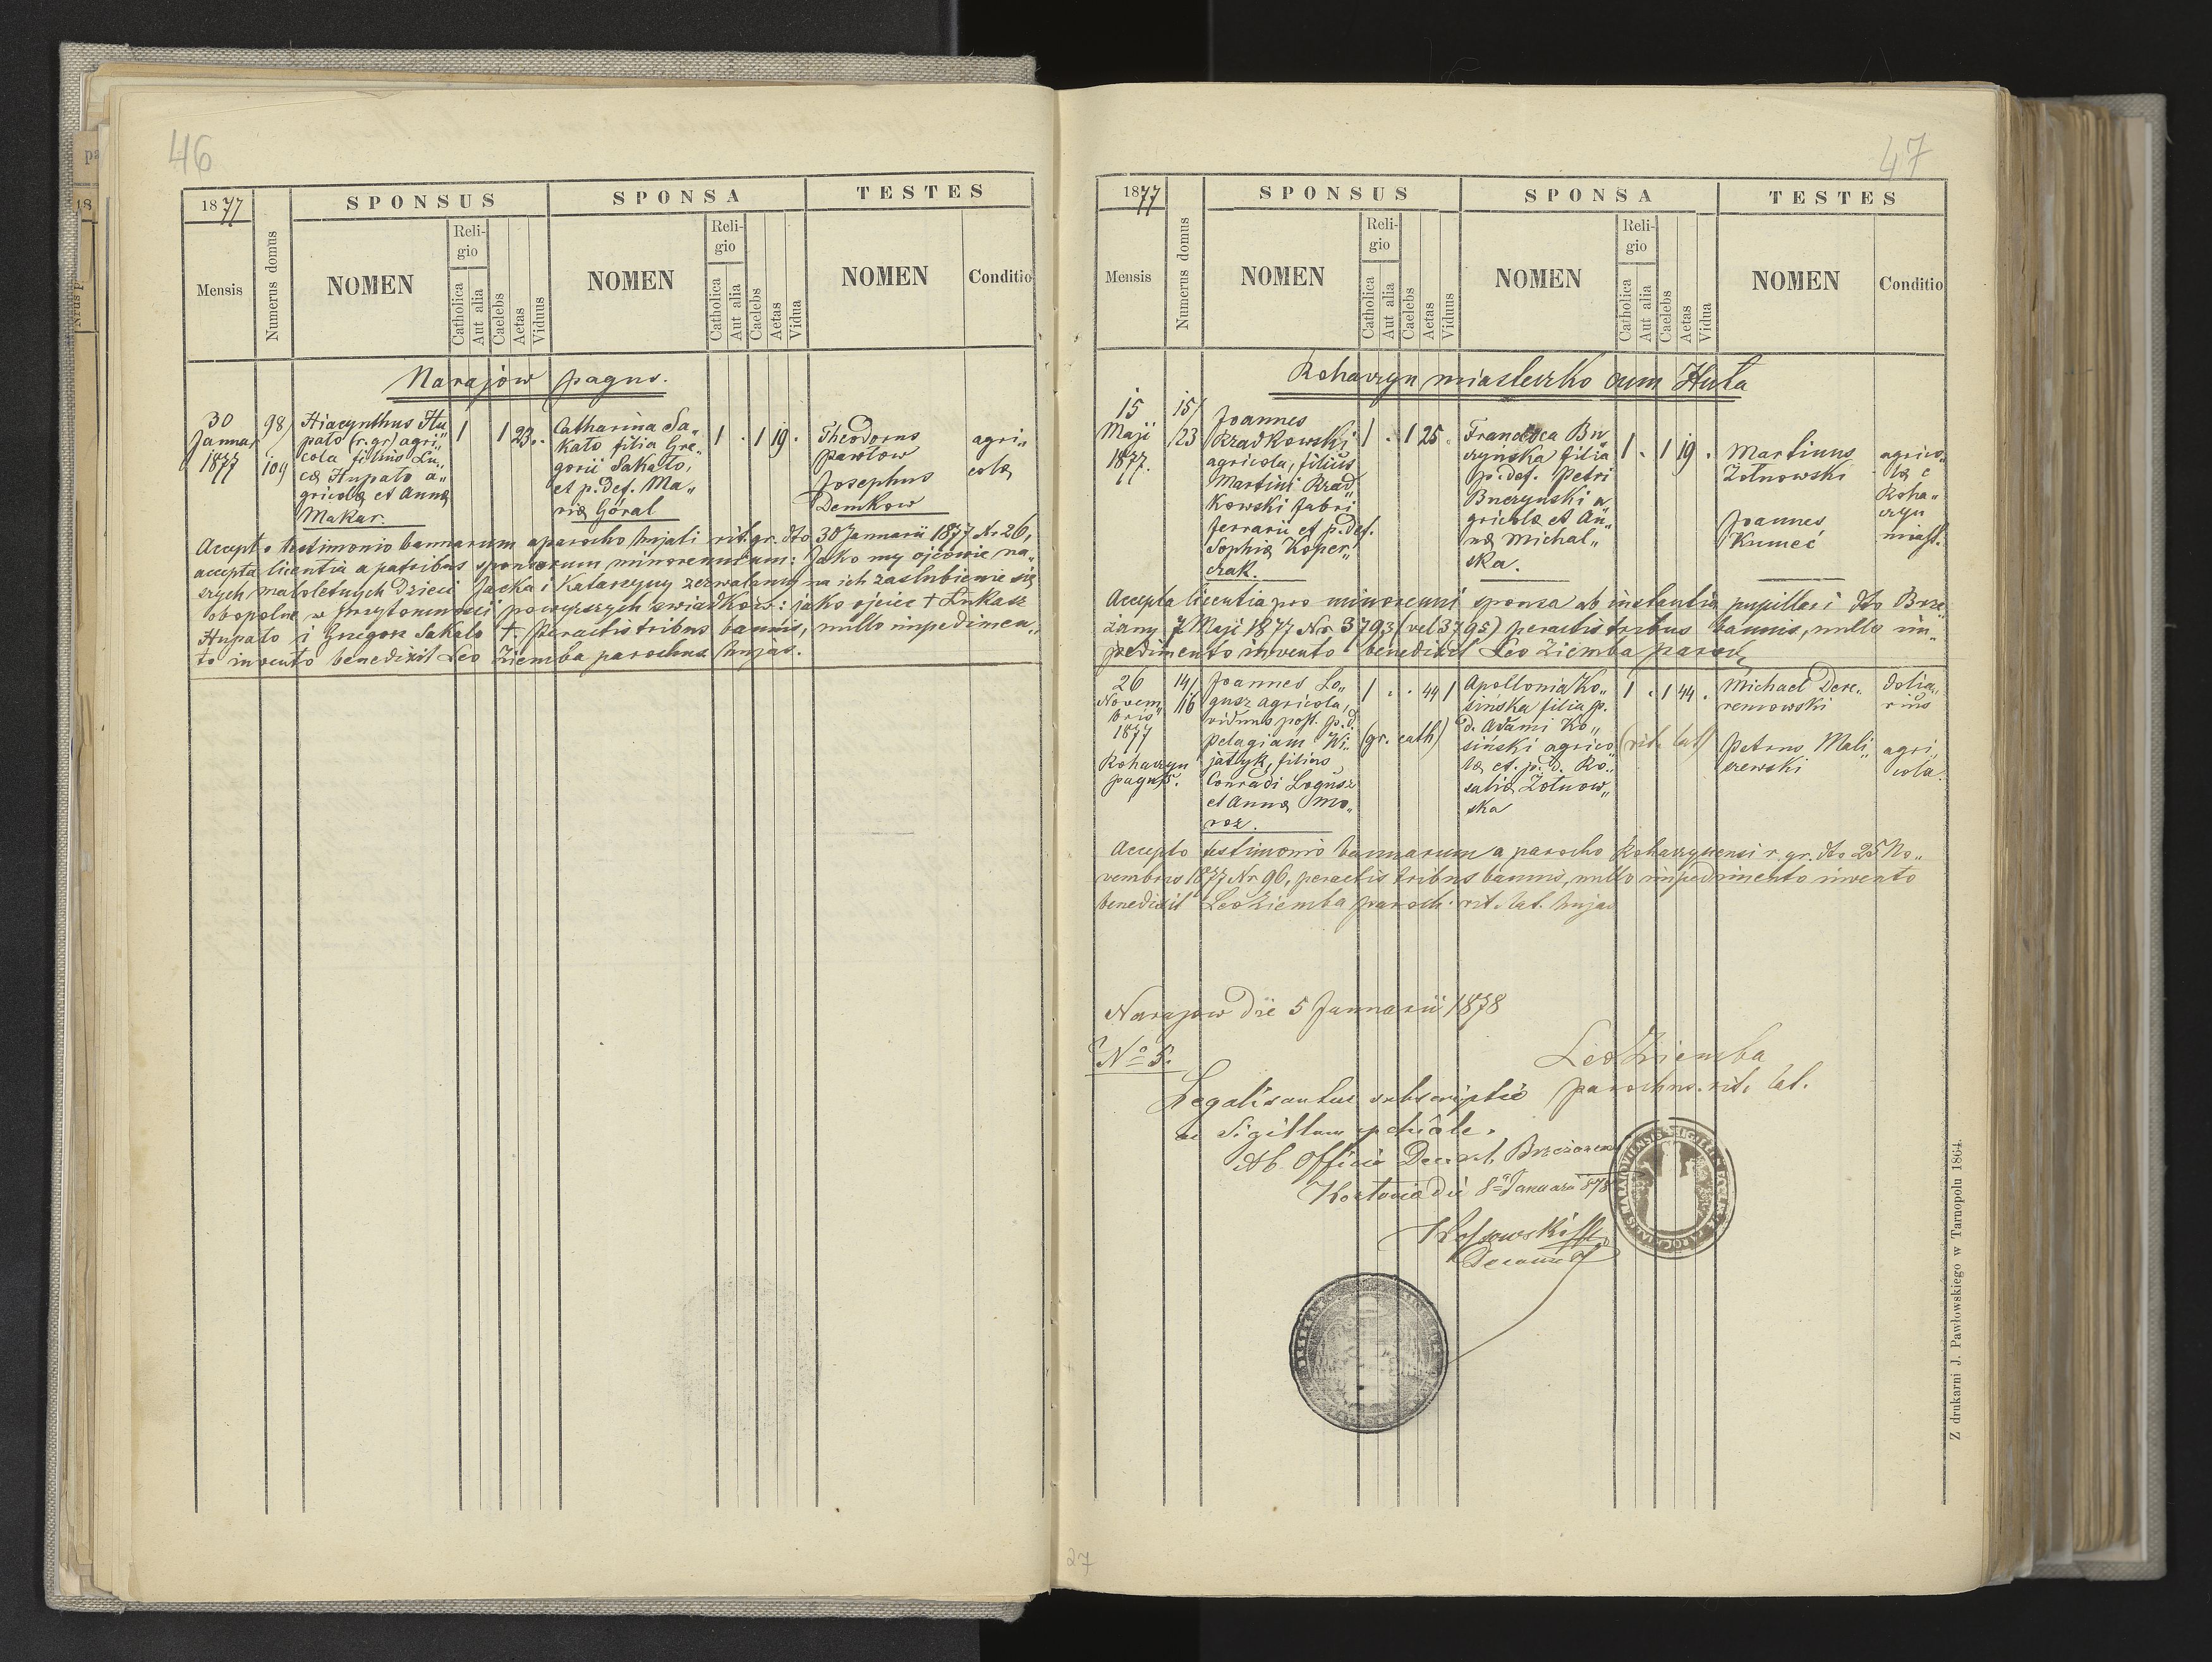 46
1877
SPONSUS
SPONSA
TESTES
Mensis
Numerus domus
NOMEN
Religio
Catholica
Aut alia
Caelebs
Aetas
Viduus
NOMEN
Religio
Catholica
Aut alia
Caelebs
Aetas
Vidua
NOMEN
Conditio
Narajów pagus.
30
Januar
1877
98/
109
Hiacynthus Hu„
pało (r. gr) agri„
cola filius Lu„
cæ Hupało a„
gricolæ et Annæ
Makar.
1 1 23.
Catharina Sa„
kało filia Gre„
gorii Sakało,
et p. def. Ma„
riæ Góral
1 . 1 19 .
Theodorus
Pawłow
Josephus
Demkow
agri„
colæ
Accepto testimonio bannorum a parocho hujati rit. gr. dto 30 Januarii 1877 Nr 26,
accepta licentia a patribus sponsorum minorennium: Jako my ojcowie na„
szych małoletnych dzieci Jacka i Katarzyny zezwalamy na ich zaślubienie się
obopolne w przytomności powyższych świadków: jako ojciec + Łukasz
Hupało i Grzegorz Sakało +. Peractis tribus bannis, nullo impedimen„
to invento benedixit Leo Ziemba parochus hujas.
47
1877
SPONSUS
SPONSA
TESTES
Mensis
Numerus domus
NOMEN
Religio
Catholica
Aut alia
Caelebs
Aetas
Viduus
NOMEN
Religio
Catholica
Aut alia
Caelebs
Aetas
Vidua
NOMEN
Conditio
Rohaczyn miasteczko cum Huta
15
Maji
1877.
15/
123
Joannes
Rradkowski
agricola, filius
Martini Rrad„
kowski fabri
ferrarii et p. def.
Sophiæ Koper„
czak.
1 . 1 25 .
Francisca Bu„
czynska filia
p. def. Petri
Buczynski a„
gricolæ et An„
næ Michal„
ska.
1 . 1 19 .
Martinus
Żołnowski
Joannes
Kumeć
agrico„
læ e
Roha„
czyn
miast.
Accepta licentia pro minorenni sponsa ab instantia pupillari dto Brze„
żany 7 Maji 1877 Nr. 3793 (vel 3795) peractis tribus bannis, nullo im„
pedimento invento benedixit Leo Ziemba paroch
26
Novem„
bris
1877
Rohaczyn
pagus.
14/
116
Joannes Lo„
gusz agricola,
viduus post p. d.
Pelagiam Wi„
jatyk, filius
Conradi Logusz
et Annæ Mo„
roz.
1 . . 44 1
(gr. cath)
Apollonia Ko„
sińska filia p.
d. Adami Ko„
siński agrico„
læ et. p. d. Ro„
saliæ Żołnow„
ska
1 . 1 44 .
(rit. lat)
Michael Dere„
remowski
Petrus Mali„
szewski
dolia„
rius
agri„
cola.
Accepto testimonio bannorum a parocho Rohaczynensi r. gr. dto 25 No„
vembris 1877 Nr 96, peractis tribus bannis, nullo impedimento invento
benedixit Leo Ziemba paroch. rit. lat. hujas
Narajow die 5 Januarii 1878
No 5.
Leo Ziemba
parochus. rit. lat.
Legalisantur subscriptio
ac Sigillum
Ab Officio Decanl.
die 8a Januarii 878
Decanus
27
Z drukarni J. Pawłowskiego w Tarnopolu 1864.